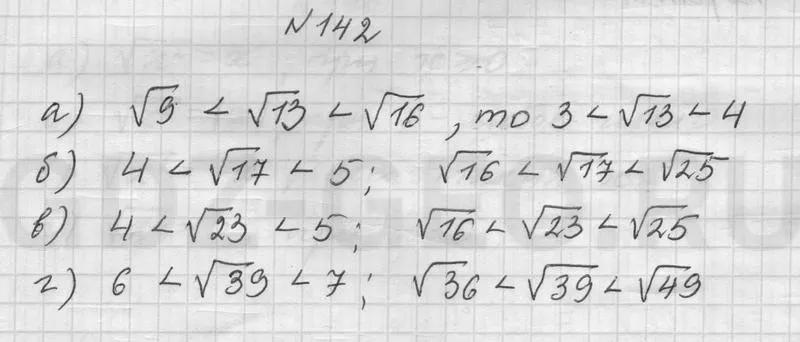 N 142
а) √9 < √13 < √16, то 3 < √13 < 4
б) 4 < √17 < 5; √16 < √17 < √25
в) 4 < √23 < 5; √16 < √23 < √25
г) 6 < √39 < 7; √36 < √39 < √49